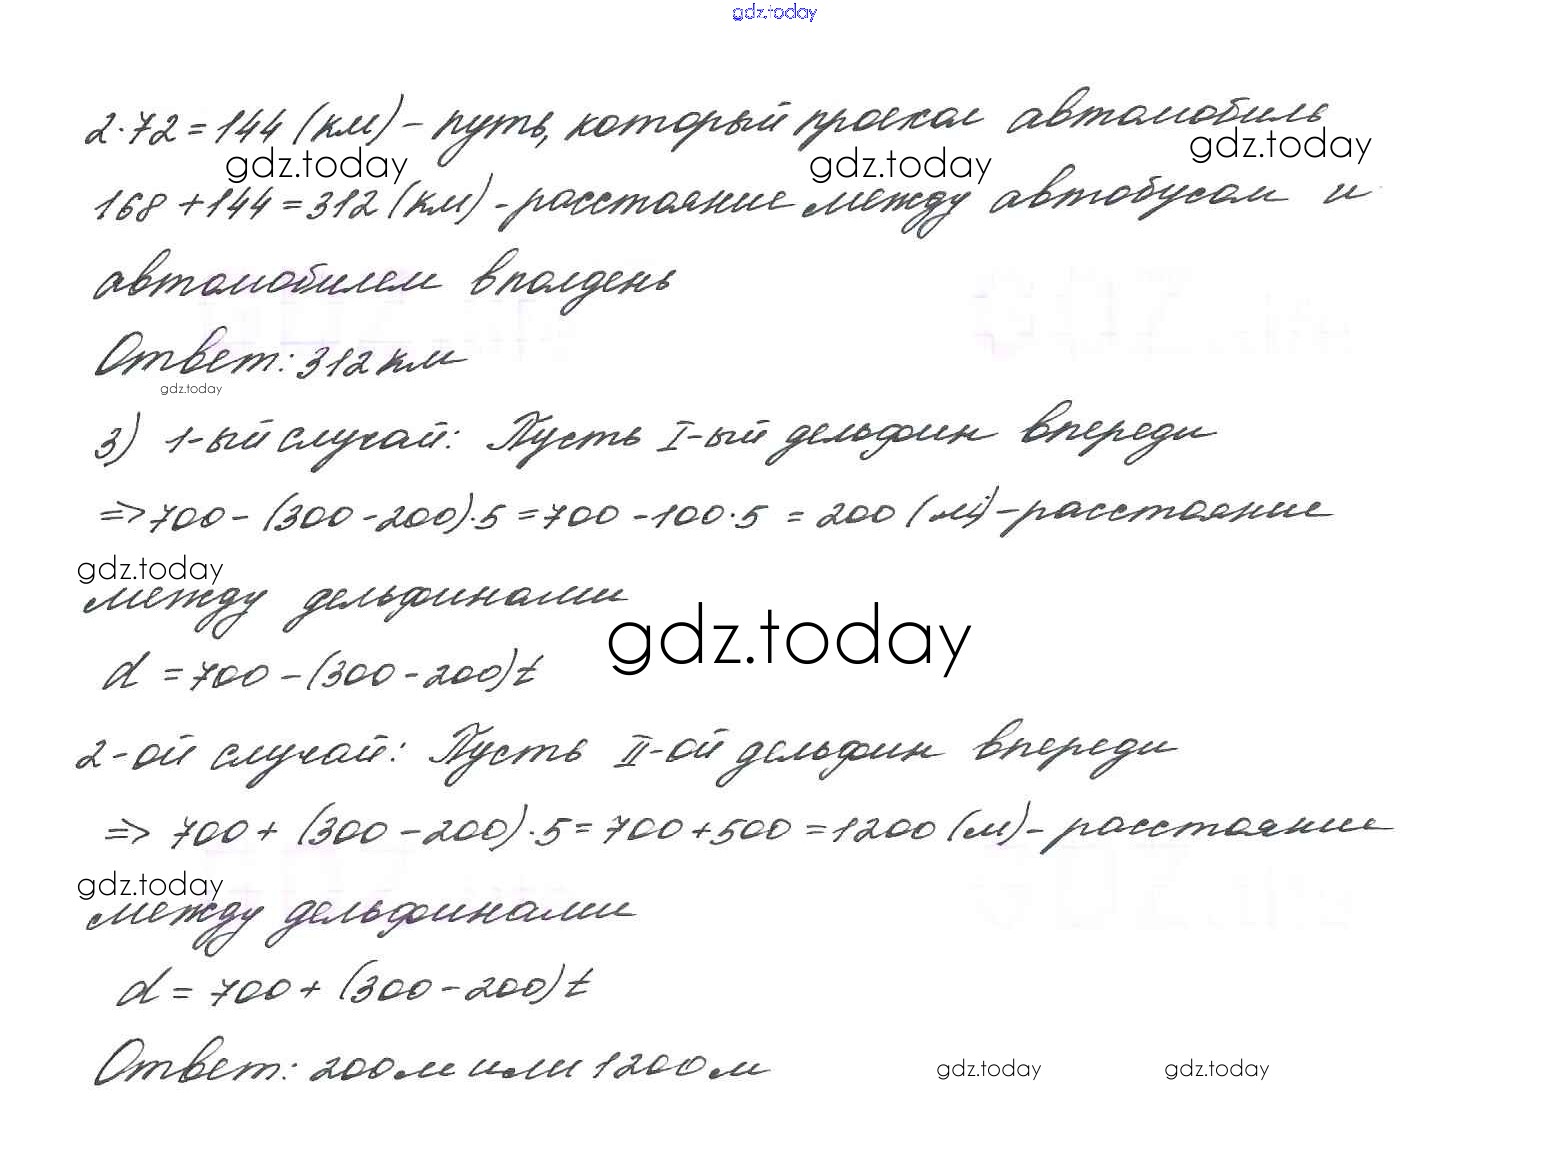 gdz.today
2·72=144 (км) - путь, который проехал автомобиль
gdz.today gdz.today gdz.today
168+144=312 (км) - расстояние между автобусом и
автомобилем в полдень
Ответ: 312 км
gdz.today
3) 1-ый случай: Пусть I-ый дельфин впереди
=> 700 - (300-200)·5 = 700-100·5 = 200 (м) - расстояние
gdz.today
между дельфинами
gdz.today
d = 700 - (300-200)t
2-ой случай: Пусть II-ой дельфин впереди
=> 700 + (300-200)·5 = 700+500 = 1200 (м) - расстояние
gdz.today
между дельфинами
d = 700 + (300-200)t
Ответ: 200 м или 1200 м
gdz.today gdz.today